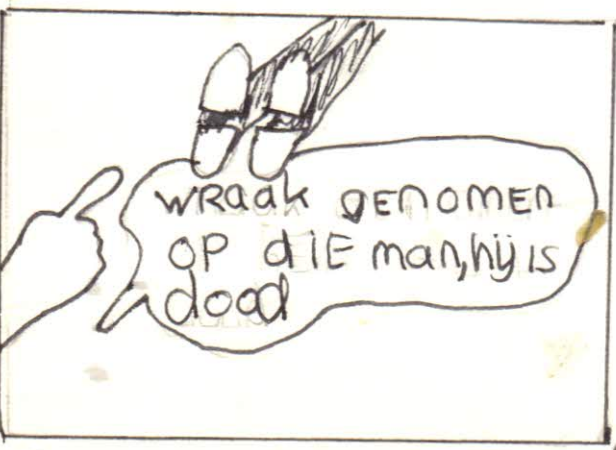 wraak genomen
op die man, hij is
dood